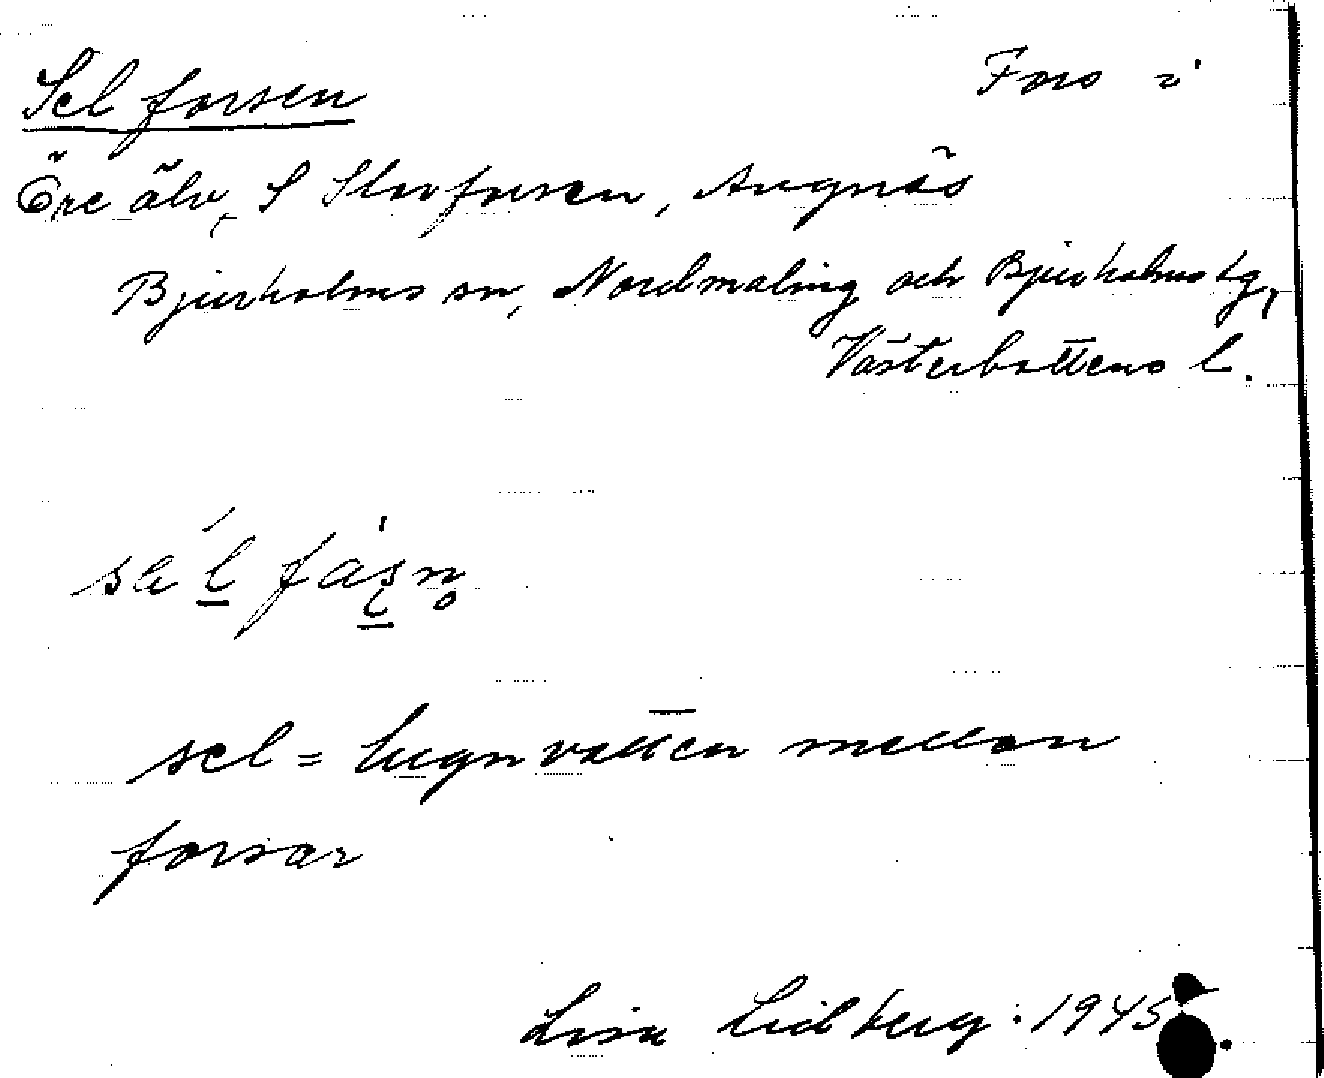 Selforsen Fors i
Öre älv, S Storforsen, Angnäs
Bjurholms sn, Nordmaling och Bjurholms tg,
Västerbottens l.
sel fasn
sel = lugnvatten mellan
forsar
Lisa Lidberg. 1945.